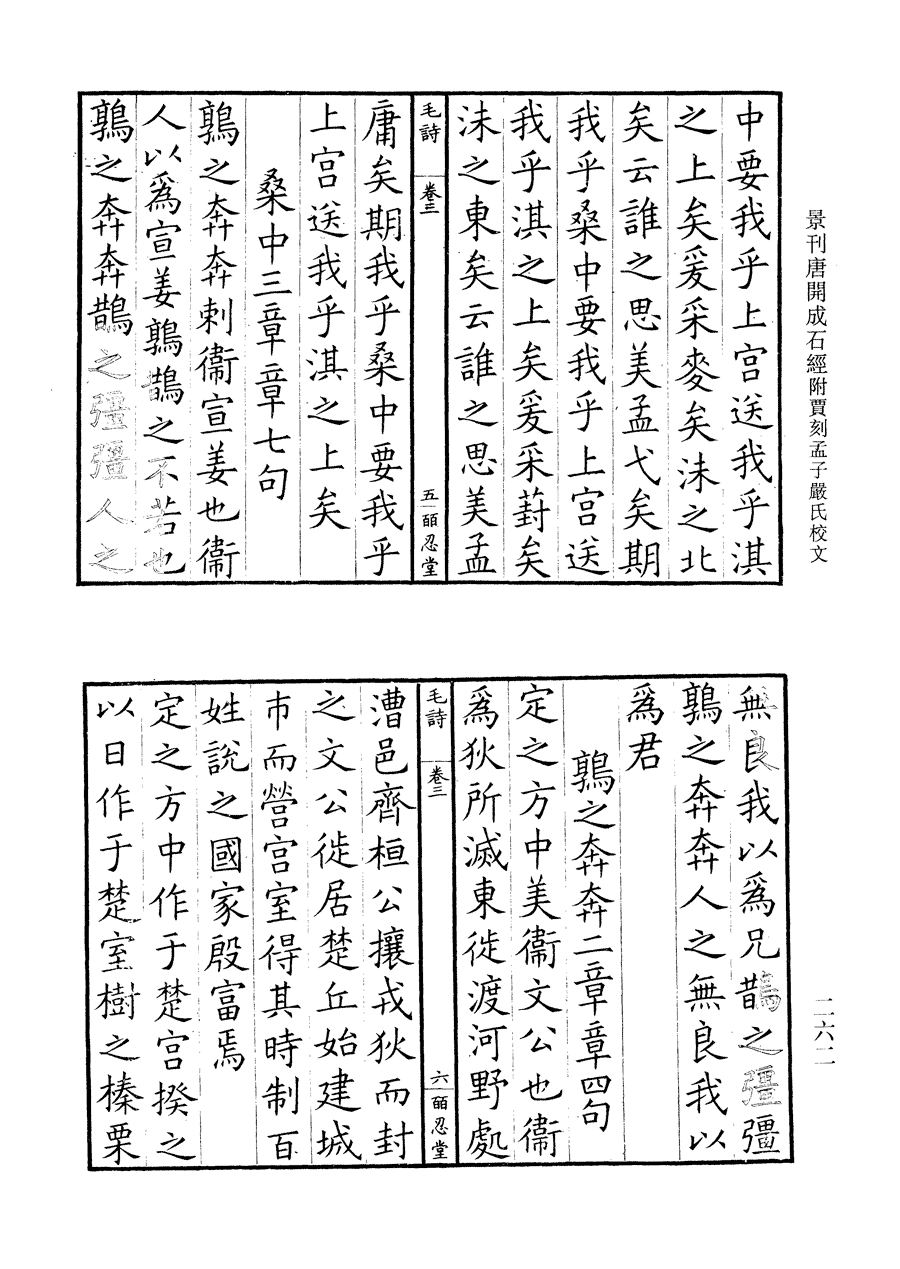 景刊唐開成石經附賈刻孟子嚴氏校文
中要我乎上宮送我乎淇
之上矣爰采麥矣沬之北
矣云誰之思美孟弋矣期
我乎桑中要我乎上宮送
我乎淇之上矣爰采葑矣
沬之東矣云誰之思美孟
毛詩 卷三 五 皕忍堂
庸矣期我乎桑中要我乎
上宮送我乎淇之上矣
桑中三章章七句
鶉之奔奔刺衞宣姜也衞
人以爲宣姜鶉鵲之不若也
鶉之奔奔鵲之彊彊人之
無良我以爲兄鵲之彊彊
鶉之奔奔人之無良我以
爲君
鶉之奔奔二章章四句
定之方中美衞文公也衞
爲狄所滅東徙渡河野處
毛詩 卷三 六 皕忍堂
漕邑齊桓公攘戎狄而封
之文公徙居楚丘始建城
市而營宮室得其時制百
姓說之國家殷富焉
定之方中作于楚宮揆之
以日作于楚室樹之榛栗
二六二